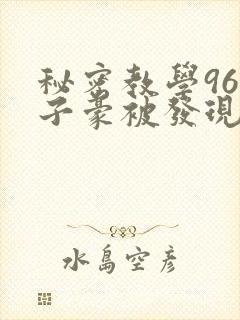 秘密教學96
子豪被發現
水島空彥